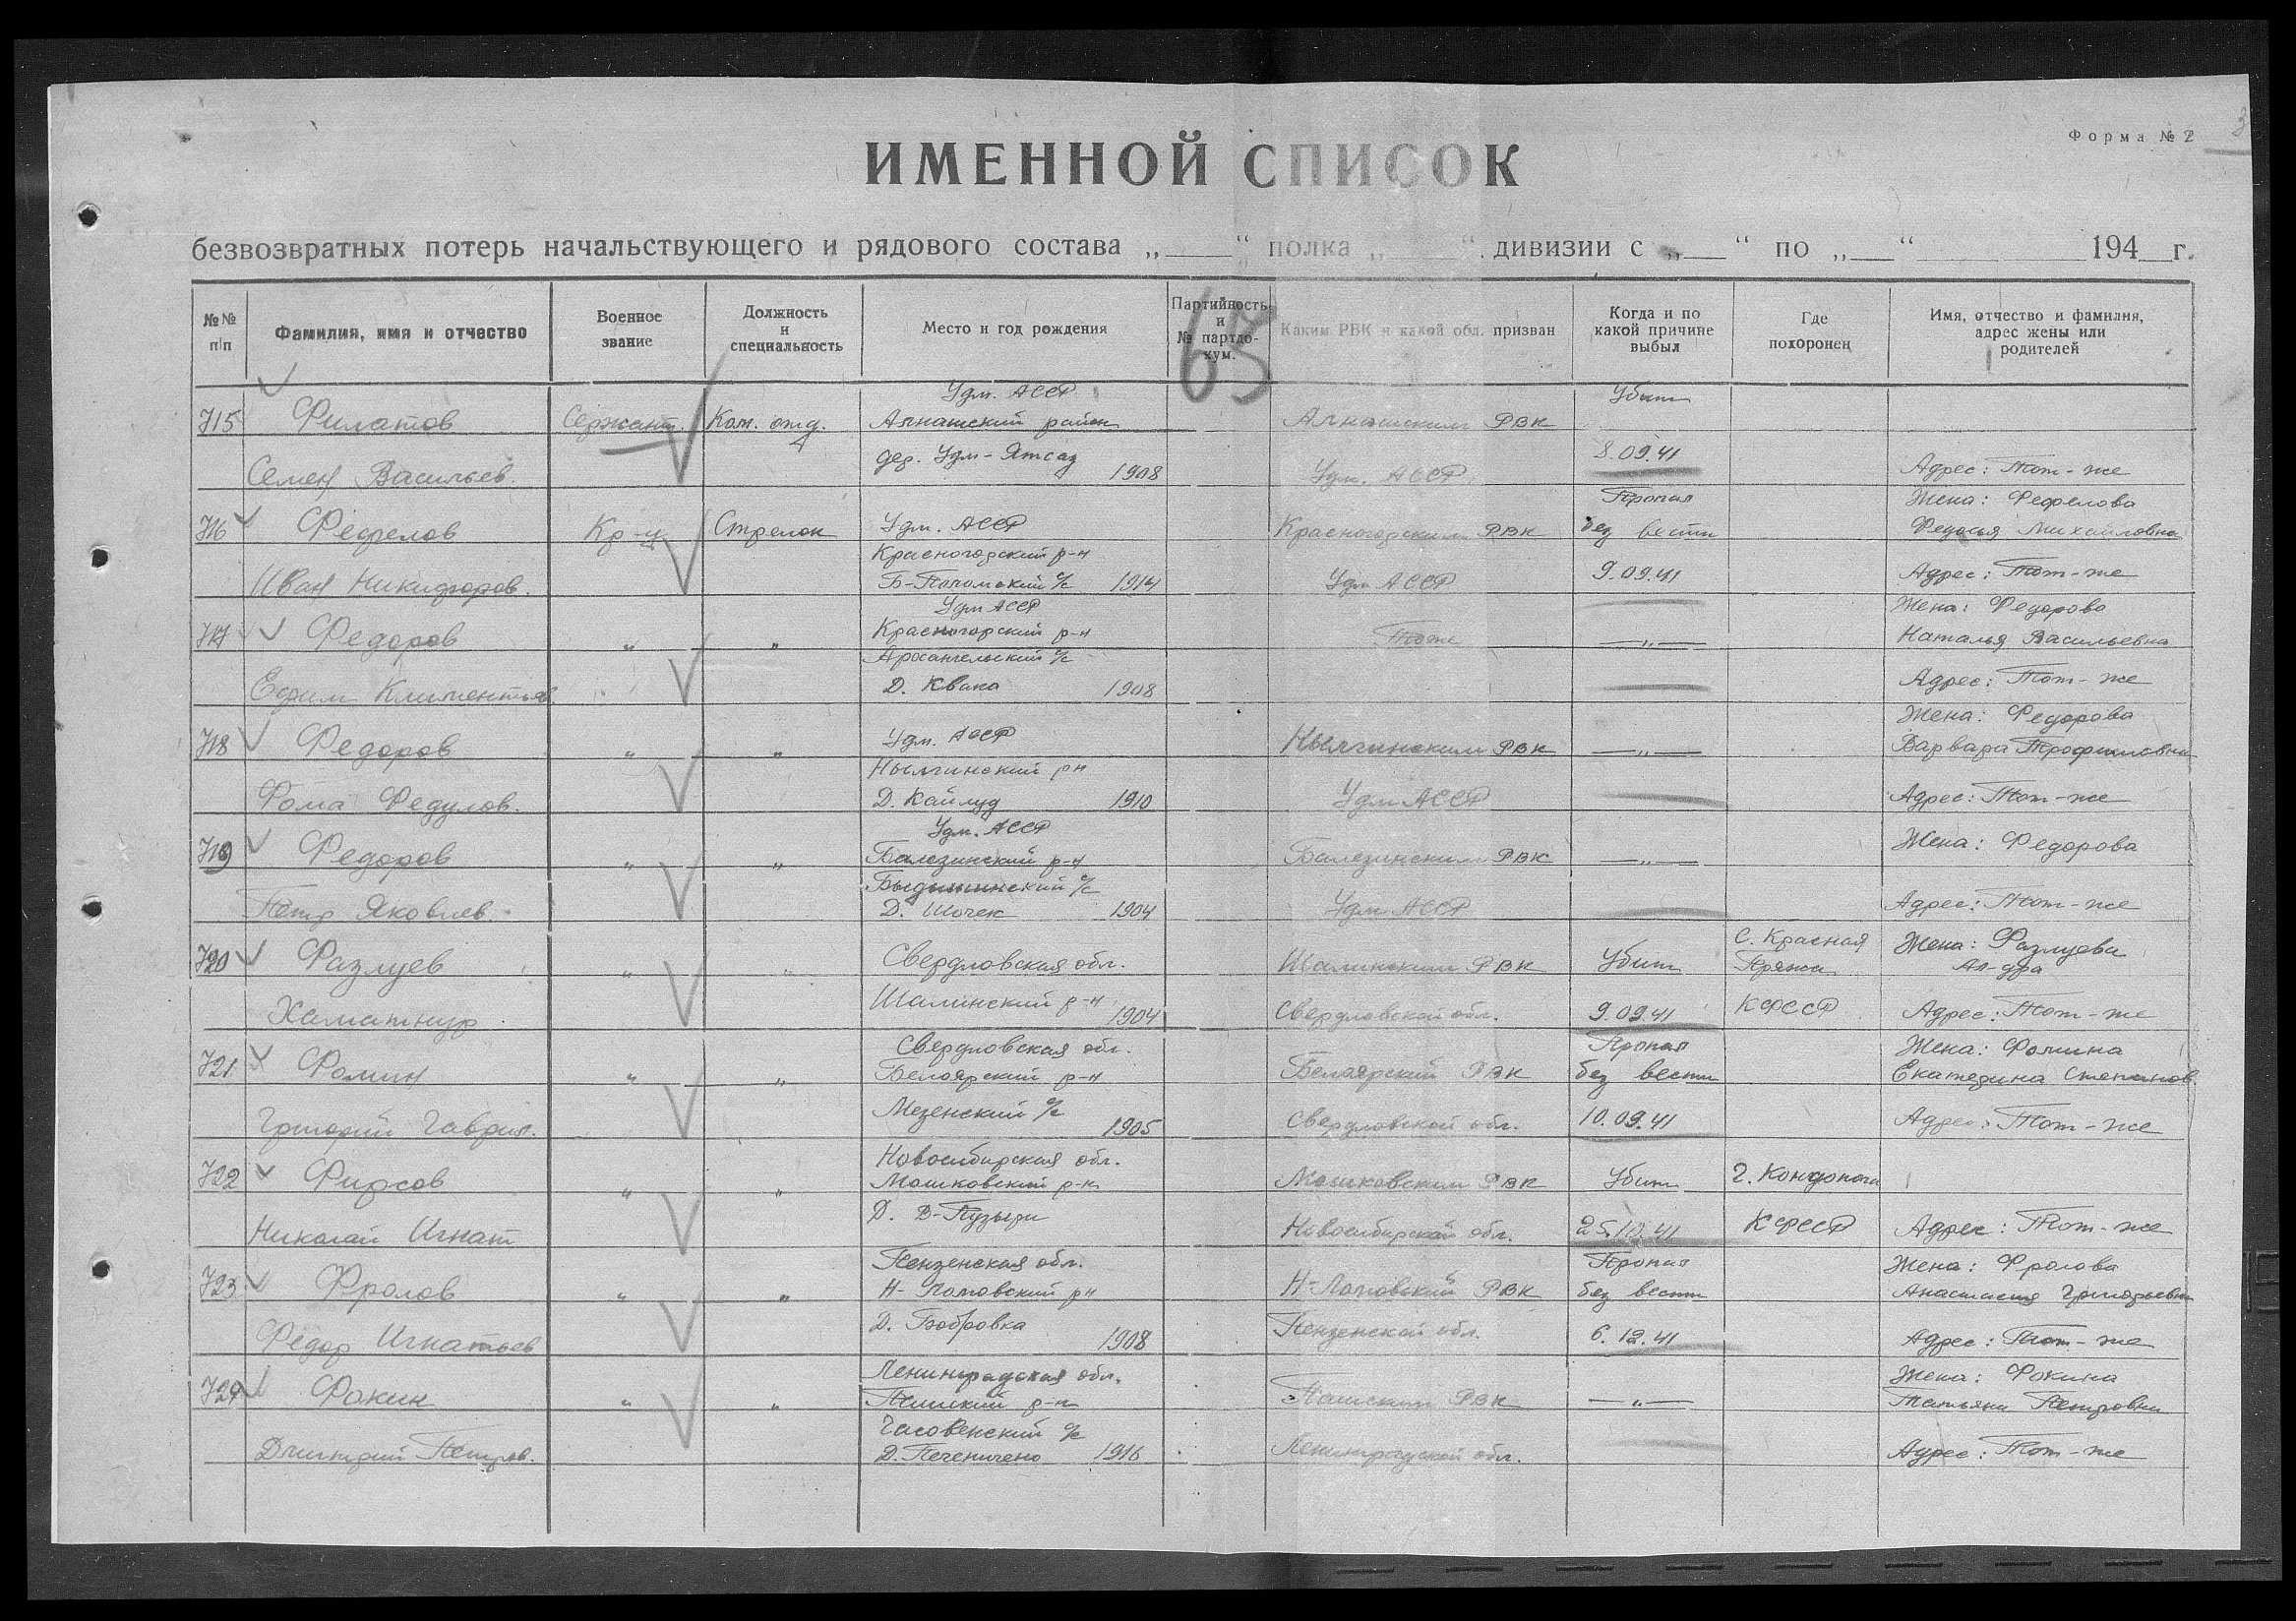 Форма № 2
ИМЕННОЙ СПИСОК
безвозвратных потерь начальствующего и рядового состава „____“ полка „____“ дивизии с „___“ по „___“ 194__г.
№№ п/п
Фамилия, имя и отчество
Военное звание
Должность и специальность
Место и год рождения
Партийность и № партдокум.
Каким РВК и какой обл. призван
Когда и по какой причине выбыл
Где похоронен
Имя, отчество и фамилия, адрес жены или родителей
63
Удм. АССР Убит
715 Филатов Сержант Ком. отд. Алнашский район Алнашским РВК
Семен Васильев. дер. Удм-Ятсаз 1908 Удм. АССР 8.09.41 Адрес: Тот-же
Пропал Жена: Федрелова
716 Федрелов Кр-ц Стрелок Удм. АССР Красногорским РВК без вести Федосья Михайловна
Красногорский р-н
Иван Никифоров. 1914 Удм АССР 9.09.41 Адрес: Тот-же
Удм АССР Жена: Федорова
717 Федоров „ „ Красногорский р-н Тоже —„— Наталья Васильевна
Архангельский с/с
Ефим Климентьев. Д. Квака 1908 Адрес: Тот-же
Жена: Федорова
718 Федоров „ „ Удм. АССР Нылгинским РВК —„— Варвара Трофимовна
Нылгинский рн
Фома Федулов. Д. Кайлуд 1910 Удм АССР Адрес: Тот-же
Удм. АССР
719 Федоров „ „ Балезинский р-н Балезинским РВК —„— Жена: Федорова
Петр Яковлев. Д. Шочек 1904 Удм АССР Адрес: Тот-же
С. Красная Жена: Фазлуева
720 Фазлуев „ „ Свердловская обл. Шалинским РВК Убит Пряжа Ал-дра
Хаматнур Шалинский р-н 1904 Свердловской обл. 9.09.41 КФССР Адрес: Тот-же
Свердловская обл. Пропал Жена: Фомина
721 Фомин „ „ Белоярский р-н Белоярский РВК без вести Екатерина Степанов.
Григорий Гаврил. Мезенский с/с 1905 Свердловской обл. 10.09.41 Адрес: Тот-же
Новосибирская обл.
722 Фирсов „ „ Мошковский р-н Мошковским РВК Убит г. Кондопога
Николай Игнат Д. В-Пузыри Новосибирской обл. 25.10.41 КФССР Адрес: Тот-же
Пензенская обл. Пропал Жена: Фролова
723 Фролов „ „ Н-Ломовский рн Н-Ломовский РВК без вести Анастасия Григорьевн
Федор Игнатьев Д. Бобровка 1908 Пензенской обл. 6.12.41 Адрес: Тот-же
Ленинградская обл. Жена: Фокина
724 Фокин „ „ р-н Пашским РВК —„— Татьяна Петровна
Часовенский с/с
Дмитрий Петров. Д. Печеничено 1916 Ленинградской обл. Адрес: Тот-же